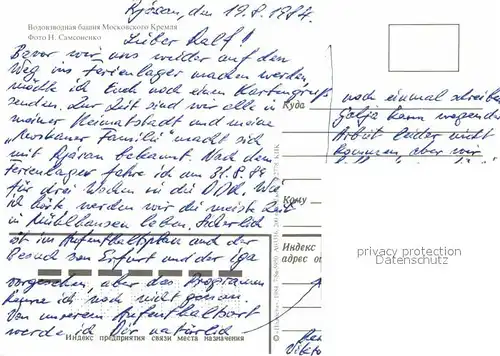 Водовзводная башня Московского Кремля
Фото Н. Самсоненко
Rjasan, den 19.8.1984.
Lieber Ralf!
Bevor wir uns wieder auf den
Weg ins Ferienlager machen werden,
möchte ich Euch noch einen Kartengruß
senden. Zur Zeit sind wir alle in
meiner Heimatstadt und meine
„Moskauer Familie" macht sich
mit Rjasan bekannt. Nach dem
Ferienlager fahre ich am 31.8.84
für drei Wochen in die DDR. Wie
ich hörte werden wir die meiste Zeit
in Mühlhausen leben. Sicherlich
ist im Aufenthaltsplan auch der
Besuch von Erfurt und der iga
vorgesehen, aber das Programm
kenne ich noch nicht genau.
Von unserem Aufenthaltsort
werde ich Dir natürlich
noch einmal schreiben
Galja kann wegen der
Arbeit leider nicht
kommen, aber wir
Куда
Кому
Индекс
адрес от
Индекс предприятия связи места назначения
privacy protection
Datenschutz